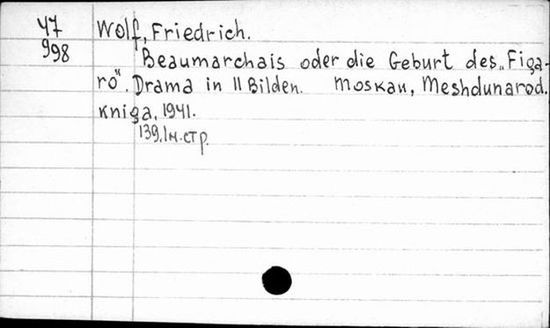 47
998
Wolf, Friedrich.
Beaumarchais oder die Geburt des „Figa-
ro". Drama in 11 Bilden. Moskau, Meshdunarod.
Kniga, 1941.
139, 1 н. стр.